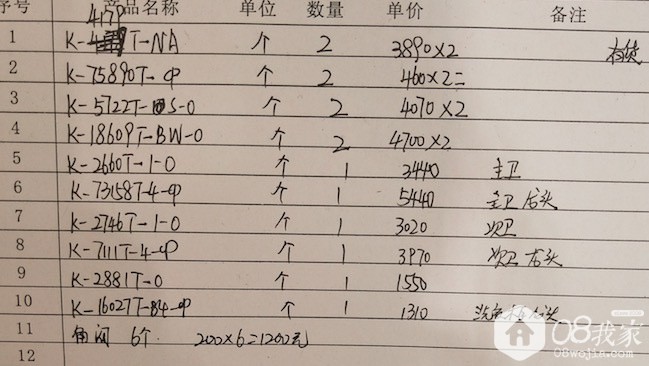 序号 产品名称 单位 数量 单价 备注
4179
1 K-T-NA 个 2 3890×2 有货
2 K-75890T-CP 个 2 460×2=
3 K-5722T-S-0 个 2 4070×2
4 K-18609T-BW-0 个 2 4700×2
5 K-2660T-1-0 个 1 3440 主卫
6 K-73158T-4-CP 个 1 5440 主卫龙头
7 K-2746T-1-0 个 1 3020 次卫
8 K-7111T-4-CP 个 1 3970 次卫龙头
9 K-2881T-0 个 1 1550
10 K-16027T-B4-CP 个 1 1310 龙头
11 角阀 6个. 200×6=1200元
12
08我家
08wojia.com